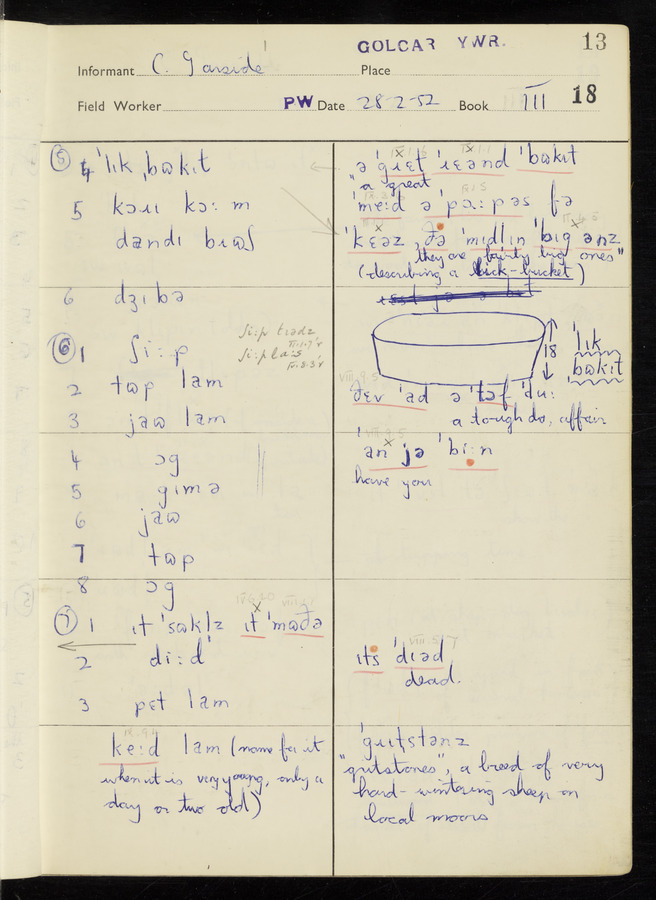 GOLCAR YWR. 13
Informant C. Garside Place
Field Worker PW Date 28-2-52 Book III 18
⑤ 4 ˈlɪk ˌbɷkɪt
5 kɔɪɪ kɔ: m
dandɪ bɪɷʃ
6 dʒɪbə
⑥ 1 ʃi:p
ʃi:p tɪədz
ʃi:p la:s
2 tɷp lam
3 jaɷ lam
4 ɔg
5 gɪmə
6 jaɷ
7 tɷp
8 ɔg
⑦ 1 ɪt ˈsɷklz ɪt ˈmɷðə
2 di:d
3 pɛt lam
ke:d lam (name for it
when it is very young, only a
day or two old)
ə ˈgɪɛt ˈɪɛənd ˈbɷkɪt
"a great
ˈme:d ə ˈpɔ:pəs fə
ˈkɛəz, ðə ˈmɪdlɪn ˈbɪg ənz
they are fairly big ones"
(describing a lick-bucket)
18
ˈlɪk
ˌbɷkɪt
VIII.9.5
ðɛv ˈad ə ˈtəf ˈdu:
a tough do, affair
ˈan jə ˈbi:n
have you
VIII.5.7
ɪts ˈdɪəd
dead.
ˈgɪɪtstənz
"gritstones", a breed of very
hard-wintering sheep on
local moors